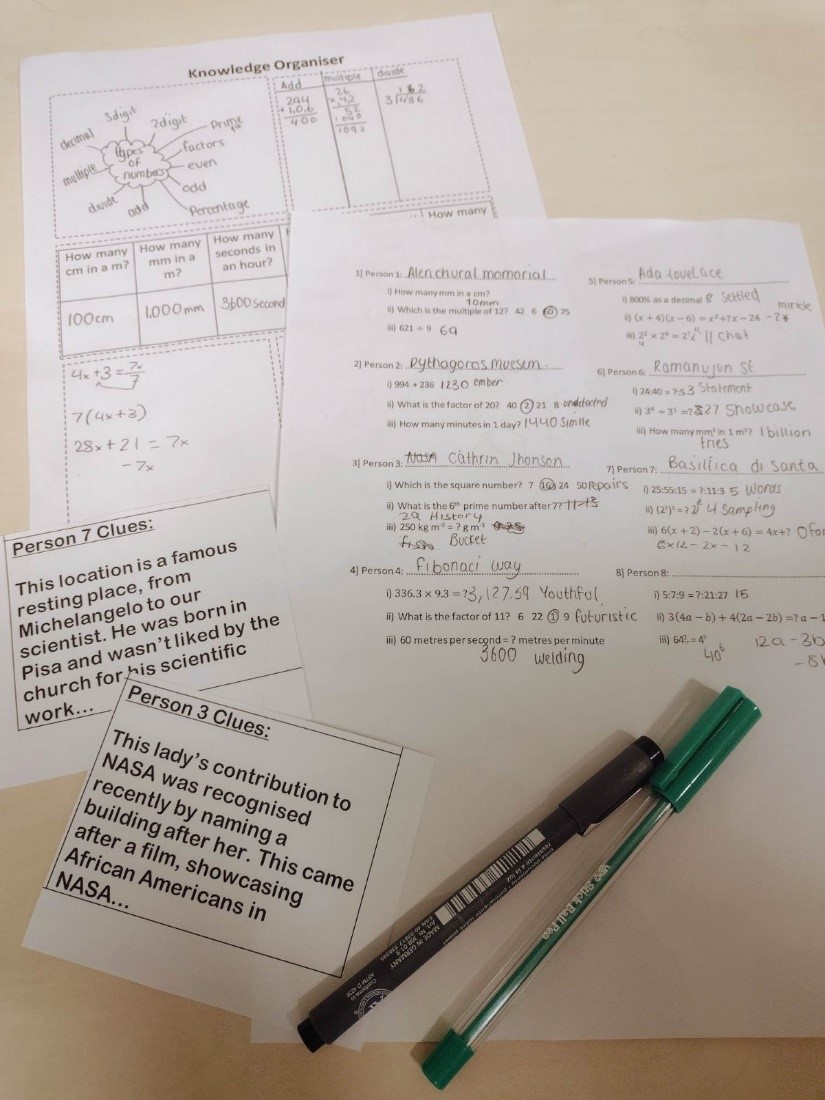 Knowledge Organiser
types of number
3digit
2digit
prime
factors
even
odd
Percentage
odd
divide
multiple
decimal
Add
294
+106
400
multiple
26
x 42
52
1040
1092
divide
162
3√486
How many
How many cm in a m?
How many mm in a m?
How many seconds in an hour?
100cm
1,000mm
3600second
4x+3 = 7x/7
7(4x+3)
28x+21 = 7x
-7x
1] Person 1: Alen chural momorial
i) How many mm in a cm?
10mm
ii) Which is the multiple of 12? 42 6 60 75
iii) 621 ÷ 9 69
2] Person 2: Pythagoros muesem
i) 994 + 236 1230 ember
ii) What is the factor of 20? 40 2 21 8 undetected
iii) How many minutes in 1 day? 1440 Simile
3] Person 3: Nasa Cathrin Jhonson
i) Which is the square number? 7 16 24 50 Repairs
ii) What is the 6th prime number after 7? 11-13
29 History
iii) 250 kg m⁻³ = ? g m⁻³
Bucket
4] Person 4: Fibonaci way
i) 336.3 × 9.3 = ? 3,127.59 Youthful
ii) What is the factor of 11? 6 22 1 9 futuristic
iii) 60 metres per second = ? metres per minute
3600 welding
5] Person 5: Ada lovelace
i) 800% as a decimal 8 Settled
miricle
ii) (x + 4)(x − 6) = x²+?x − 24 -2
11 Chat
6] Person 6: Ramanujun St
i) 24:40 = ?:5 3 Statement
27 Showcase
iii) How many mm³ in 1 m³? 1 billion
tries
7] Person 7: Basillica di Santa
i) 25:55:15 = ?:11:3 5 Words
4 Sampling
iii) 6(x + 2) − 2(x + 6) = 4x+? 0 for
6x12 - 2x - 12
8] Person 8:
i) 5:7:9 = ?:21:27 15
ii) 3(4a − b) + 4(2a − 2b) =?a − 1
12a - 3b
40⁶
Person 7 Clues:
This location is a famous
resting place, from
Michelangelo to our
scientist. He was born in
Pisa and wasn't liked by the
church for his scientific
work...
Person 3 Clues:
This lady's contribution to
NASA was recognised
recently by naming a
building after her. This came
after a film, showcasing
African Americans in
NASA...
MADE IN GERMANY
Stick Ball Pen